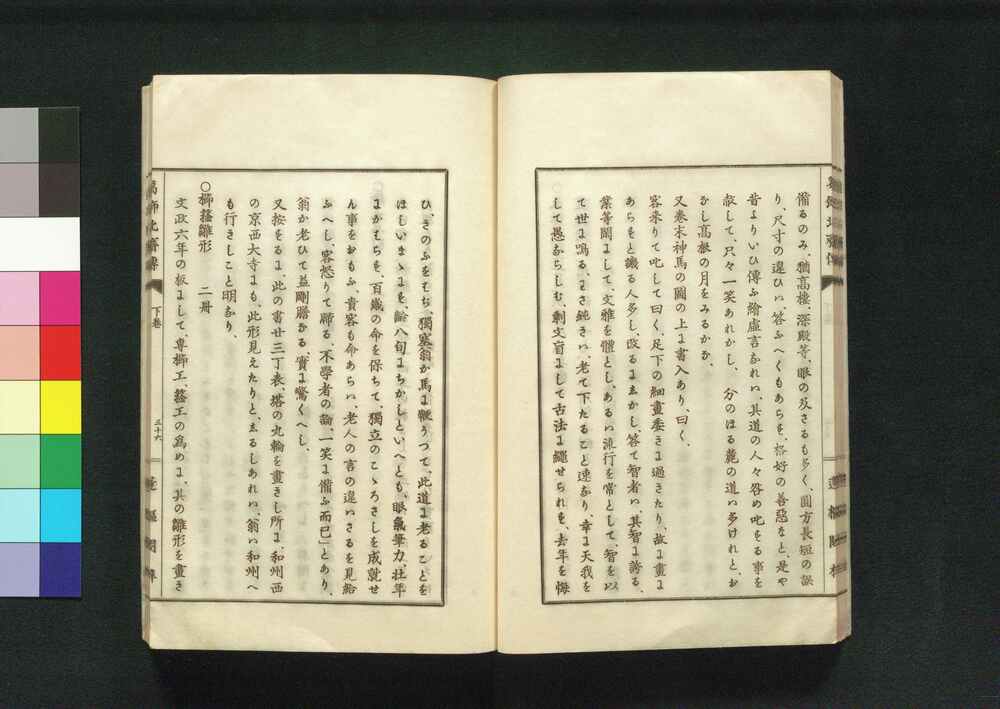 備るのみ、猶高樓、深殿等、眼の及さるも多く、圓方長短の誤
り、尺寸の違ひハ、答ふへくもあらを、格好の善惡なと、是や
昔よりいひ傳ふ繪虛言なれハ、其道の人々咎め叱をる事を
赦して、只々一笑あれかし、 分のほる麓の道ハ多けれと、お
かし高根の月をみるかな、
又卷末神馬の圖の上に書入あり、曰く、
客來りて叱して曰く、足下の細畫委きに過きたり、故に畫に
あらをと譏る人多し、改るにゑかし、答て智者ハ、其智に誇る、
葉等闇にして、文雅を體とし、あるハ流行を常として、智を以
て世に鳴る、まさ鈍きハ、老て下たること速なり、幸に天我を
して愚ならしむ、剩文盲にして古法に繩せられを、去年を悔
ひ、きのふをもち、獨塞翁か馬に鞭うつて、此道に老ることを
ほしいまゝにを、齡八旬にちかしといへとも、眼氣筆力、壯年
にかもらを、百歲の命を保ちて、獨立のこゝろさしを成就せ
ん事をおもふ、貴客も命あらハ、老人の言の違ハさるを見給
ふへし、客怒りて歸る、不學者の論、一笑に備ふ而已」とあり、
翁か老ひて益剛膽なる、實に驚くへし、
又按をるに、此の書廿三丁表、塔の丸輪を畫きし所に、和州西
の京西大寺にも、此形見えたりと、ゑるしあれハ、翁ハ和州へ
も行きしこと明なり、
○櫛䈏雛形 二册
文政六年の板にして、専櫛工、䈏工の爲めに、其の雛形を畫き
下卷
三十六